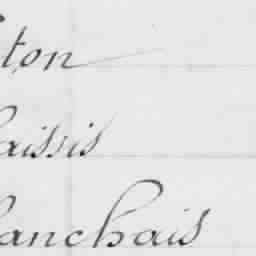 ton
aissis
lanchais